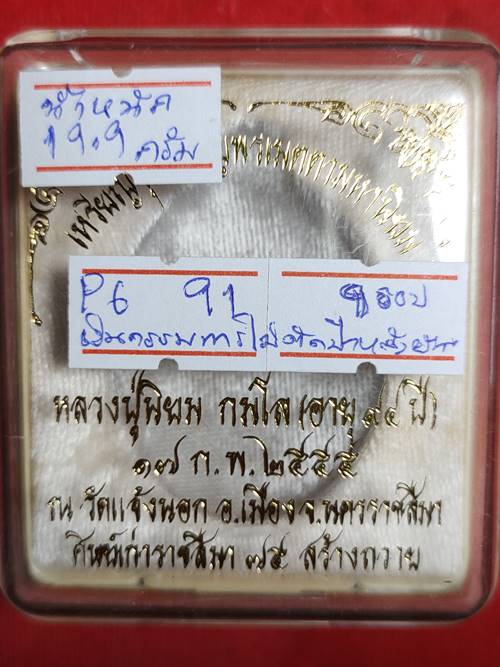 น้ำหนัก
19.9 ครัม
เหรียญ พรเมตตามหานิยม
P6 91 ๑ออป
เงินกรรมการไม่ตัดปีกหน้ายันต์
หลวงปู่นิยม กมโล (อายุ ๙๔ ปี)
๑๗ ก.พ. ๒๕๕๕
ณ วัดแจ้งนอก อ.เมือง จ.นครราชสีมา
ศิษย์เก่าราชสีมา ๗๕ สร้างถวาย